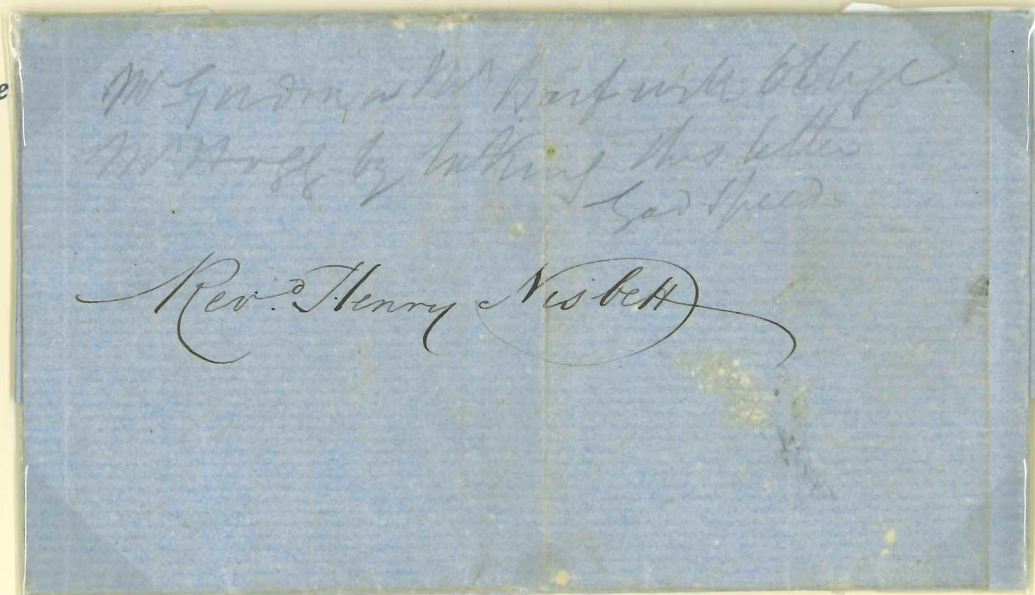 Mr Gordon or Mr Barf will oblige
Mr Hogg by taking this letter
God Speed
Revd. Henry Nisbett